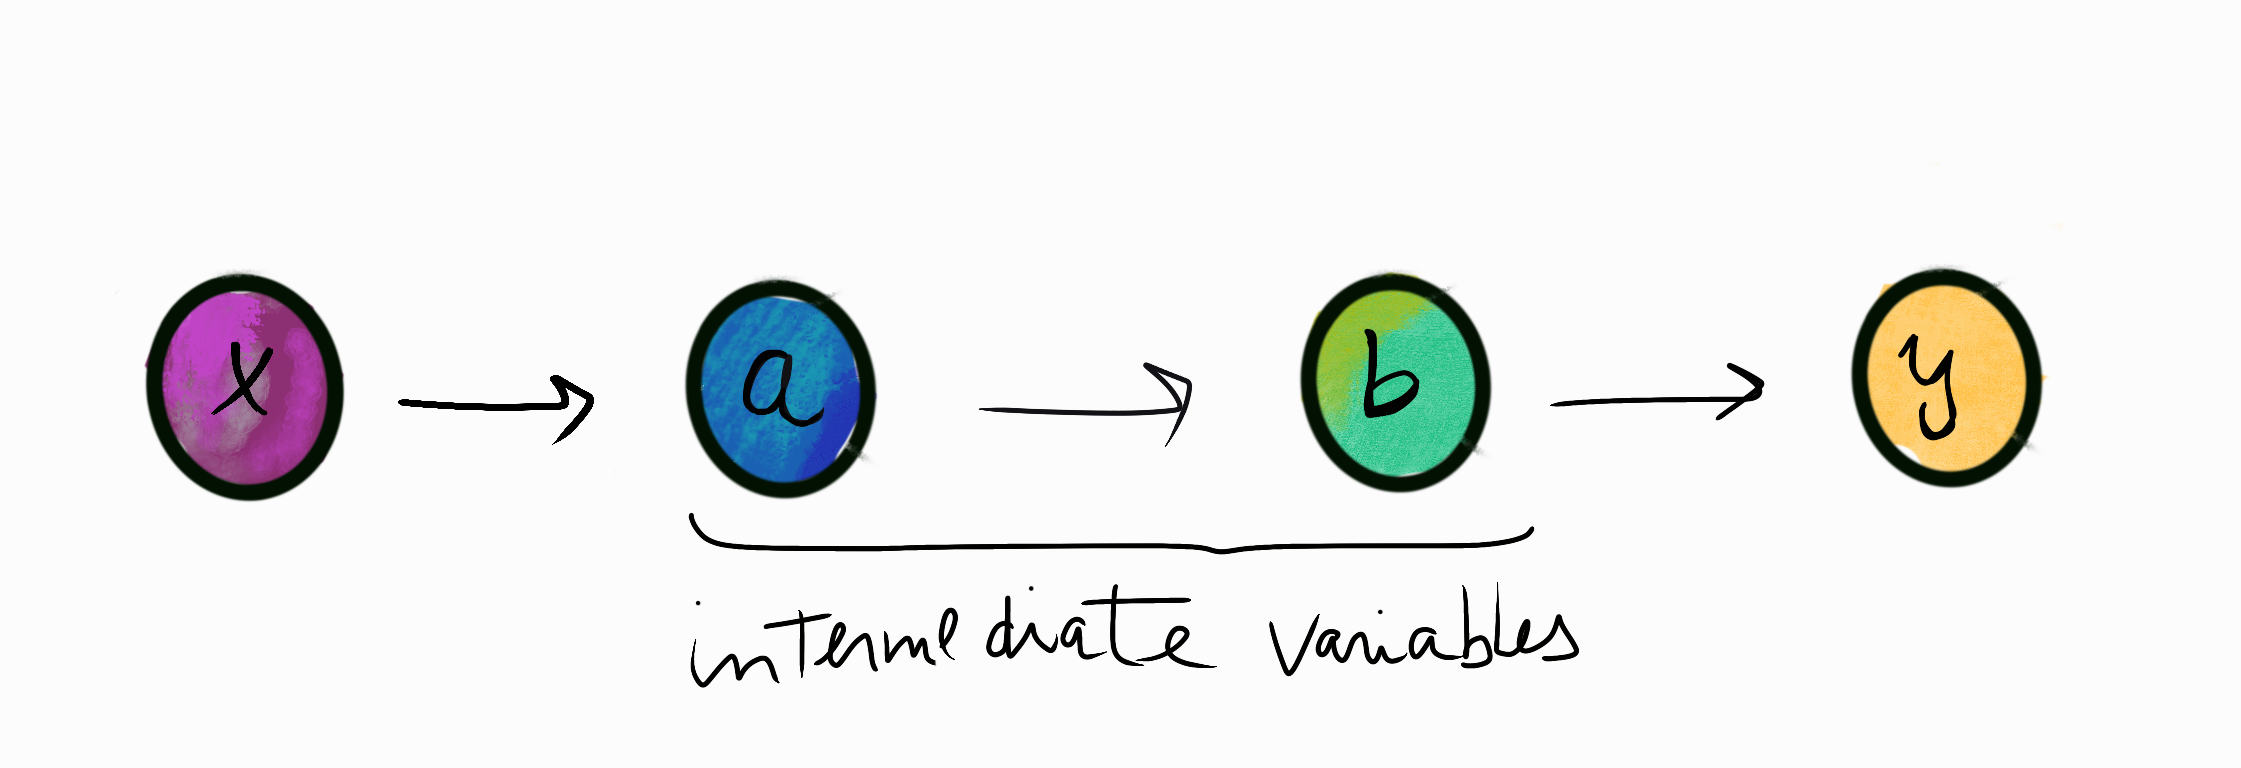 x a b y
intermediate variables